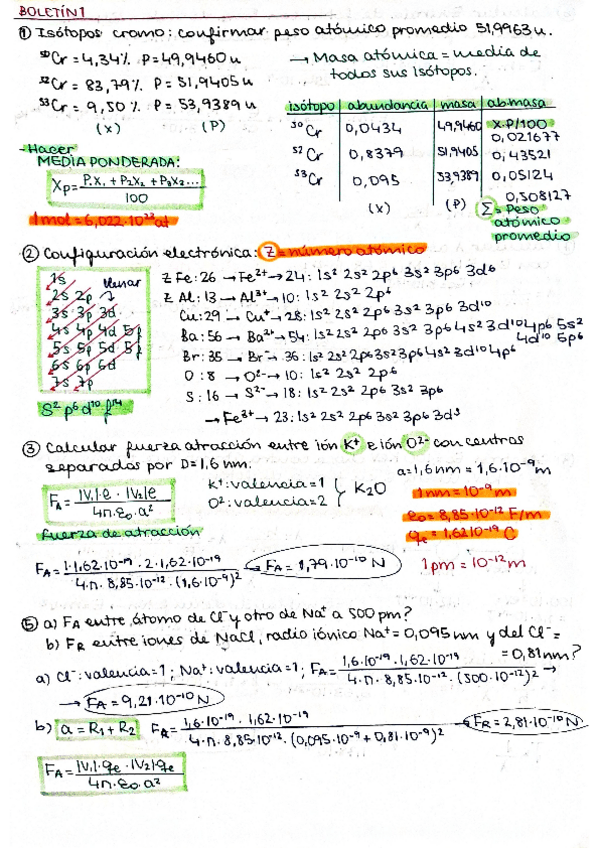 BOLETÍN 1
① Isótopos cromo: confirmar peso atómico promedio 51,9963 u.
⁵⁰Cr = 4,34% P = 49,9460 u → Masa atómica = media de
todos sus isótopos.
⁵²Cr = 83,79% P = 51,9405 u
⁵³Cr = 9,50% P = 53,9389 u
(X) (P)
isótopo | abundancia | masa | ab·masa
X·P/100
⁵⁰Cr | 0,0434 | 49,9460 | 0,021677
⁵²Cr | 0,8379 | 51,9405 | 0,43521
⁵³Cr | 0,095 | 53,9389 | 0,05124
0,508127
(X) (P) Σ = Peso
atómico
promedio
- Hacer
MEDIA PONDERADA:
Xp = P₁X₁ + P₂X₂ + P₃X₃... / 100
1mol = 6,022·10²³at
② Configuración electrónica: Z = número atómico
1s llenar
2s 2p
3s 3p 3d
4s 4p 4d 5f
5s 5p 5d 5f
6s 6p 6d
7s 7p
S² p⁶ d¹⁰ f¹⁴
Z Fe: 26 → Fe²⁺ → 24: 1s² 2s² 2p⁶ 3s² 3p⁶ 3d⁶
Z Al: 13 → Al³⁺ → 10: 1s² 2s² 2p⁶
Cu: 29 → Cu⁺ → 28: 1s² 2s² 2p⁶ 3s² 3p⁶ 3d¹⁰
Ba: 56 → Ba²⁺ → 54: 1s² 2s² 2p⁶ 3s² 3p⁶ 4s² 3d¹⁰ 4p⁶ 5s²
4d¹⁰ 5p⁶
Br: 35 → Br⁻ → 36: 1s² 2s² 2p⁶ 3s² 3p⁶ 4s² 3d¹⁰ 4p⁶
O: 8 → O²⁻ → 10: 1s² 2s² 2p⁶
S: 16 → S²⁻ → 18: 1s² 2s² 2p⁶ 3s² 3p⁶
→ Fe³⁺ → 23: 1s² 2s² 2p⁶ 3s² 3p⁶ 3d⁵
③ Calcular fuerza atracción entre ión K⁺ e ión O²⁻ con centros
separados por D = 1,6 nm.
a = 1,6 nm = 1,6·10⁻⁹ m
F_A = |V₁|·e · |V₂|e / 4π·ε₀·a²
K⁺: valencia = 1
O²⁻: valencia = 2 } K₂O
1nm = 10⁻⁹ m
ε₀ = 8,85·10⁻¹² F/m
fuerza de atracción
qe = 1,62 10⁻¹⁹ C
F_A = 1·1,62·10⁻¹⁹ · 2·1,62·10⁻¹⁹ / 4·π·8,85·10⁻¹²·(1,6·10⁻⁹)² → F_A = 1,79·10⁻¹⁰ N
1pm = 10⁻¹² m
⑤ a) F_A entre átomo de Cl⁻ y otro de Na⁺ a 500 pm?
b) F_R entre iones de NaCl, radio iónico Na⁺ = 0,095 nm y del Cl⁻ =
= 0,81nm?
a) Cl⁻: valencia = 1; Na⁺: valencia = 1; F_A = 1,6·10⁻¹⁹ · 1,62·10⁻¹⁹ / 4·π·8,85·10⁻¹²·(500·10⁻¹²)² →
→ F_A = 9,21·10⁻¹⁰ N
b) a = R₁ + R₂ F_A = 1,6·10⁻¹⁹ · 1,62·10⁻¹⁹ / 4·π·8,85·10⁻¹²·(0,095·10⁻⁹ + 0,81·10⁻⁹)² → F_R = 2,81·10⁻¹⁰ N
F_A = |V₁|·qe · |V₂|qe / 4π·ε₀·a²